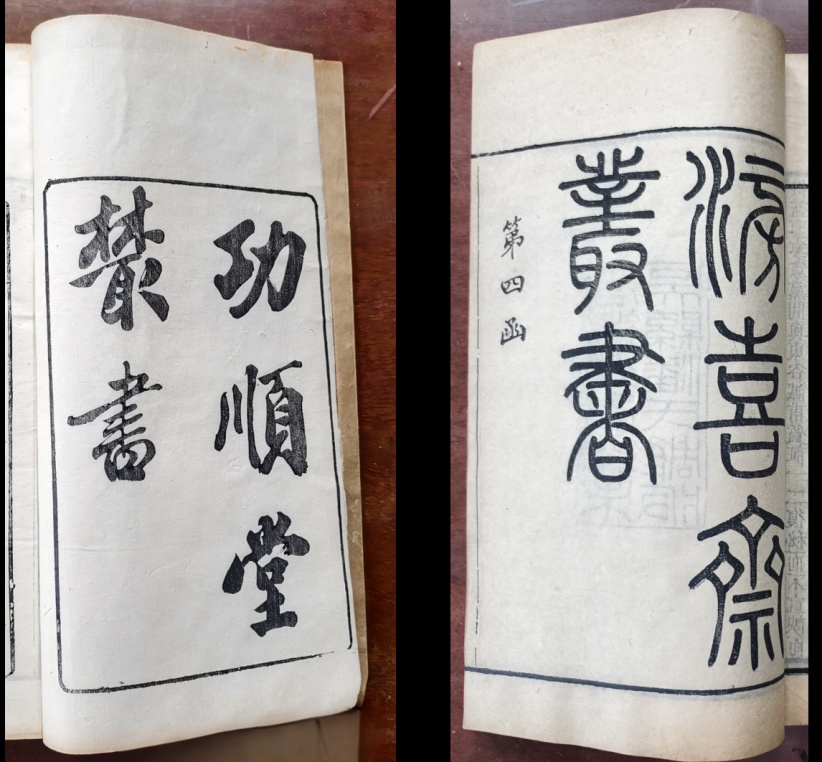 功順堂
叢書
滂喜齋
叢書
第四函